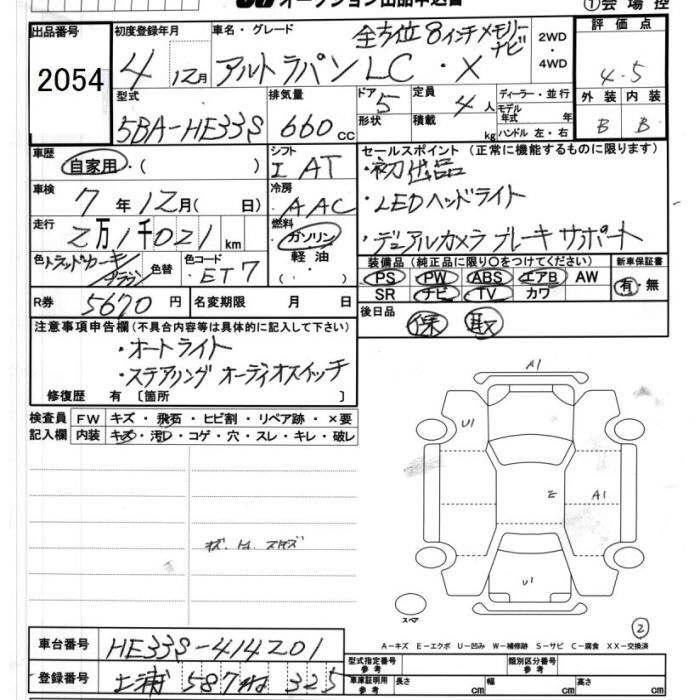 オークション出品申込書
①会場控
出品番号
2054
初度登録年月
4 12月
車名・グレード
全方位8インチメモリーナビ
アルトラパンLC・X
2WD・4WD
評価点
4.5
型式
5BA-HE33S
排気量
660cc
ドア 5
形状
定員 4人
積載 kg
ディーラー・並行
モデル年式 年
ハンドル 左・右
外装 内装
B B
車歴
自家用・( )
シフト
I AT
セールスポイント(正常に機能するものに限ります)
・初出品
車検
7年12月( 日)
冷房
AAC
・LEDヘッドライト
走行
2万1千021km
燃料
ガソリン
軽油
( ・ )
・デュアルカメラブレーキサポート
色 色替
色コード
ET7
装備品(純正品に限り〇をつけてください)
PS PW ABS エアB AW
SR ナビ TV カワ
新車保証書
有・無
R券 5670円
名変期限 月 日
後日品
保 取
注意事項申告欄(不具合内容等は具体的に記入して下さい)
・オートライト
・ステアリングオーディオスイッチ
修復歴 有 〔箇所 〕
検査員記入欄
FW キズ・飛石・ヒビ割・リペア跡・×要
内装 キズ・汚れ・コゲ・穴・スレ・キレ・破レ
A1
U1
E
A1
U1
スペア
②
A-キズ E-エクボ U-凹み W-補修跡 S-サビ C-腐食 XX-交換済
車台番号
HE33S-414201
登録番号
土浦 587 325
型式指定番号 参考
類別区分番号 参考
車庫証明用 参考
長さ cm
幅 cm
高さ cm